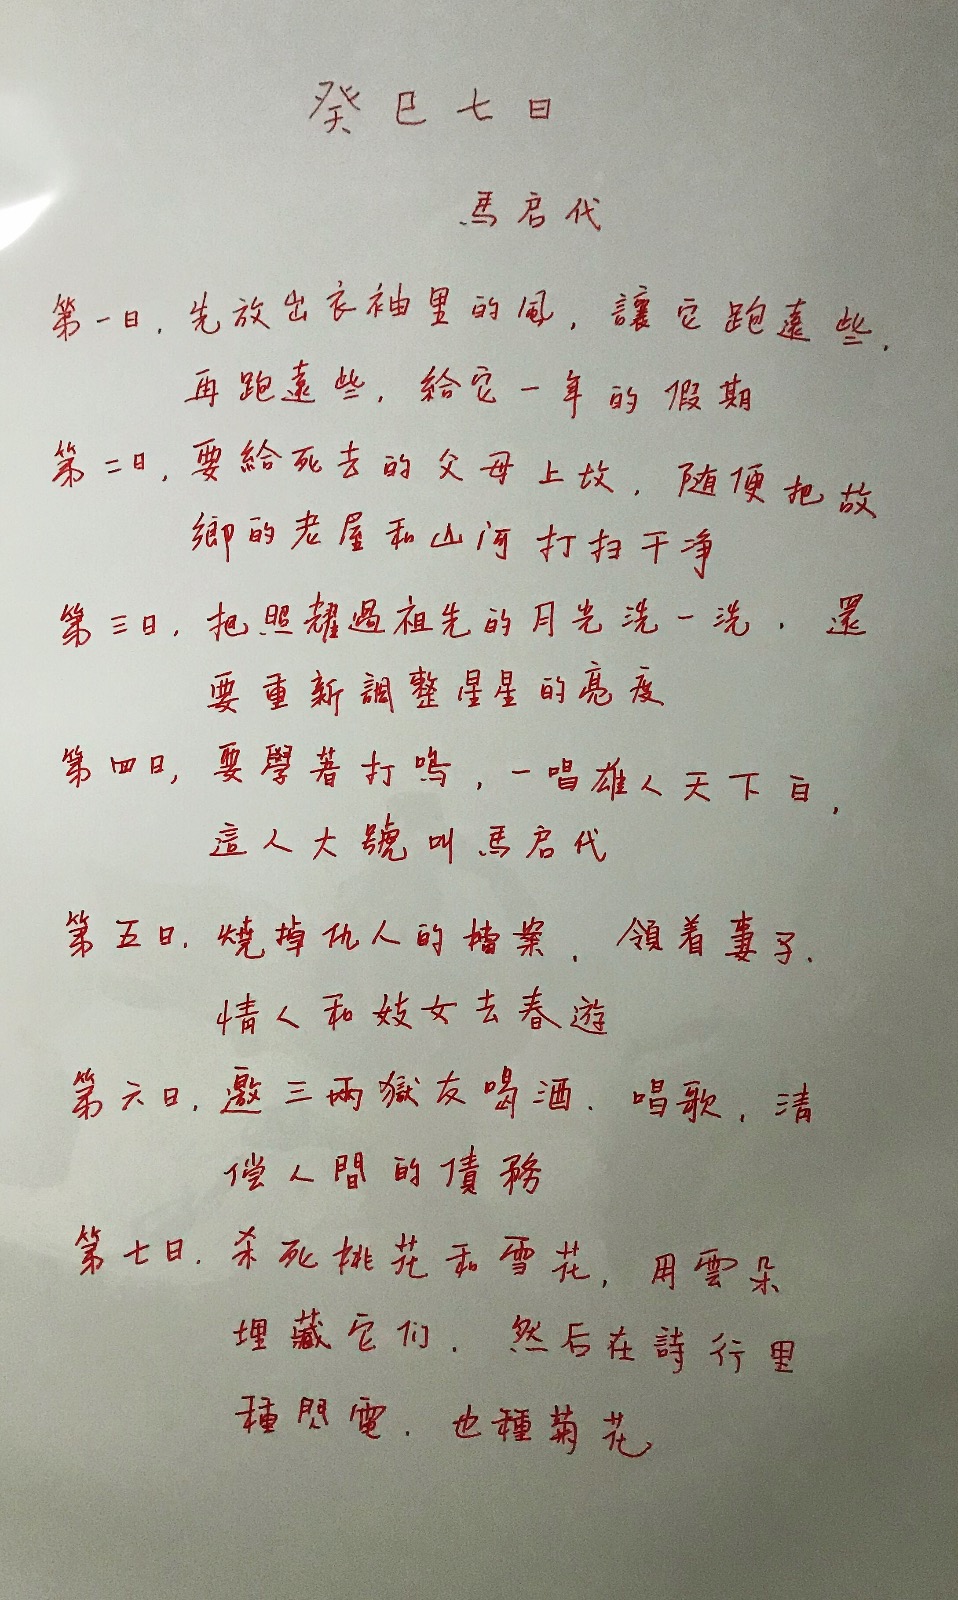 癸巳七日
馬启代
第一日，先放出衣袖里的風，讓它跑遠些，
再跑遠些，給它一年的假期
第二日，要給死去的父母上故，随便把故
鄉的老屋和山河打扫干净
第三日，把照耀過祖先的月光洗一洗，還
要重新調整星星的亮度
第四日，要學著打鳴，一唱雄人天下白，
這人大號叫馬启代
第五日，燒掉仇人的檔案，領着妻子、
情人和妓女去春遊
第六日，邀三两獄友喝酒、唱歌，清
偿人間的債務
第七日，杀死桃花和雪花，用雲朵
埋藏它们，然后在詩行里
種閃電，也種菊花